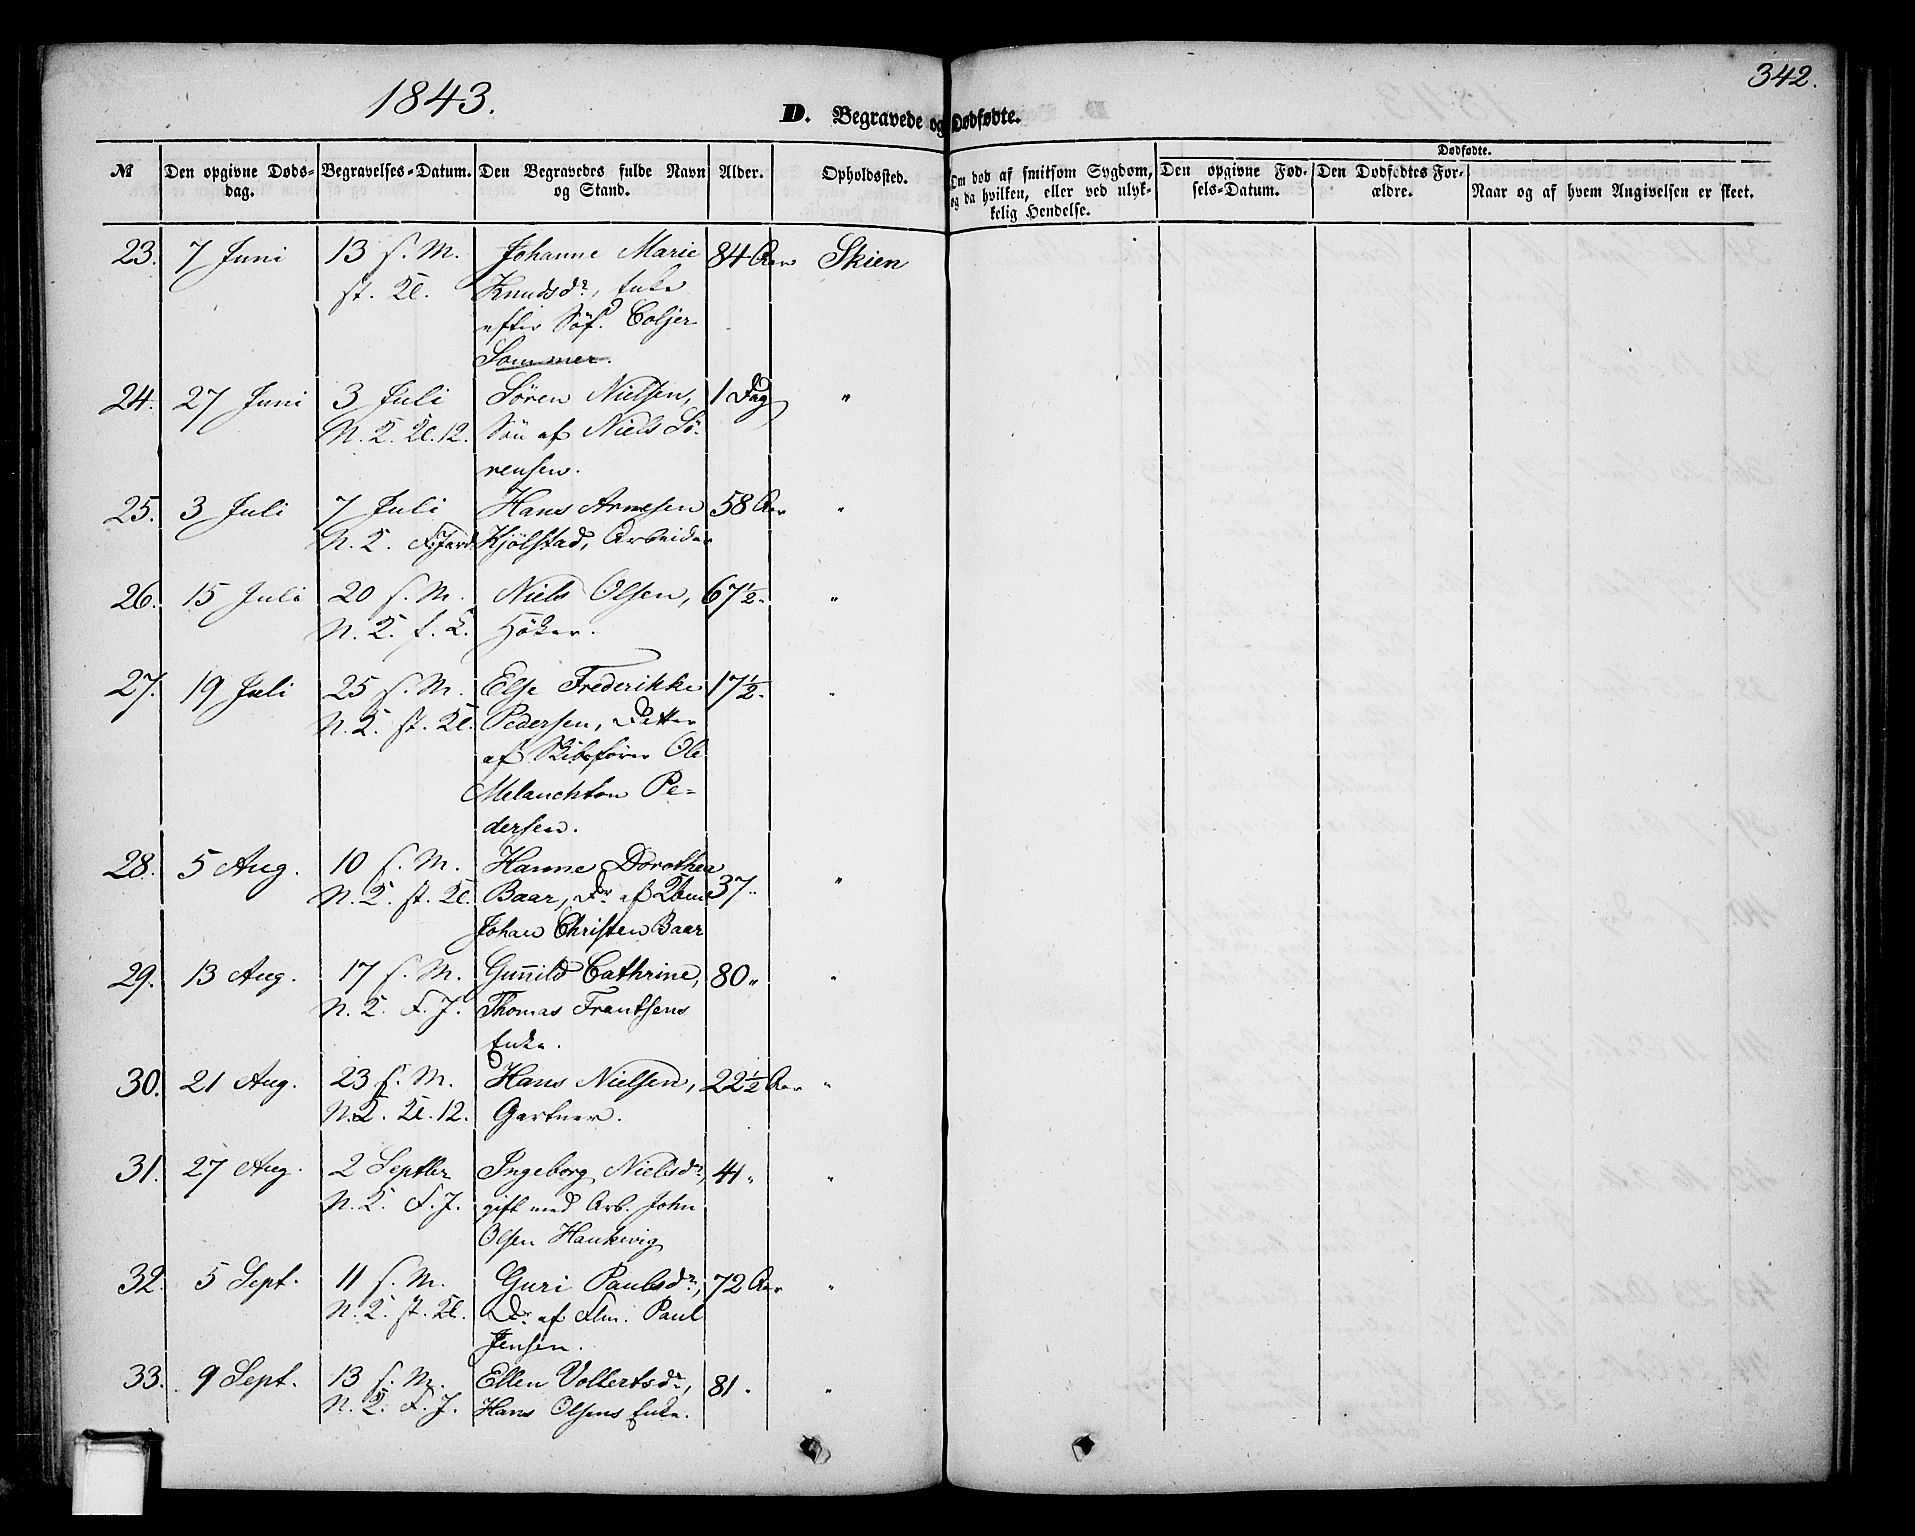 342.
1843.
D. Begravede og Dødfødte.
№ Den opgivne Døds-dag. Begravelses-Datum. Den Begravedes fulde Navn og Stand. Alder. Opholdssted. Om død af smitsom Sygdom, og da hvilken, eller ved ulykkelig Hendelse. Dødfødte. Den opgivne Fødsels-Datum. Den Dødfødtes Forældre. Naar og af hvem Angivelsen er skeet.
23. 7 Juni 13 s. M. Johanne Marie 84 Aar Skien
st. Kl. Knudsdr, Enke
efter Söf. Coljer
Sommer.
24. 27 Juni 3 Juli Sören Nielsen, 1 Dag "
N. K. Kl. 12. Sön af Niels Sö-
rensen.
25. 3 Juli 7 Juli Hans Arnesen 58 Aar "
N. K. F. Jord Kjölstad, Arbeider
26. 15 Juli 20 s. M. Niels Olsen, 67½. "
N. K. f. L. Höker.
27. 19 Juli 25 s. M. Else Frederikke 17½. "
N. K. st. Kl. Pedersen, Datter
af Skibsförer Ole
Melanchton Pe-
dersen.
28. 5 Aug. 10 s. M. Hanne Dorothea 37 "
N. K. st. Kl. Baar, Dr af
Johan Christen Baar
29. 13 Aug. 17 s. M. Gunild Cathrine, 80 " "
N. K. F. J. Thomas Frantsens
Enke.
30. 21 Aug. 23 s. M. Hans Nielsen, 22½ Aar "
N. K. Kl. 12. Gartner.
31. 27 Aug. 2 Septbr Ingeborg Nielsdr, 41 " "
N. K. F. J. gift med Arb. John
Olsen Hankevig
32. 5 Sept. 11 s. M. Guri Paulsdr, 72 Aar "
N. K. st. Kl. Dr af Flm. Paul
Jensen.
33. 9 Sept. 13 s. M. Ellen Volkertsdr, 81 " "
N. K. F. J. Hans Olsens Enke.